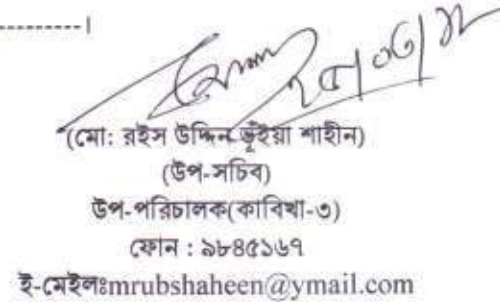 ----------।
২৫/০৬/১২
(মো: রইস উদ্দিন ভূঁইয়া শাহীন)
(উপ-সচিব)
উপ-পরিচালক(কাবিখা-৩)
ফোন : ৯৮৪৫১৬৭
ই-মেইলঃmrubshaheen@ymail.com